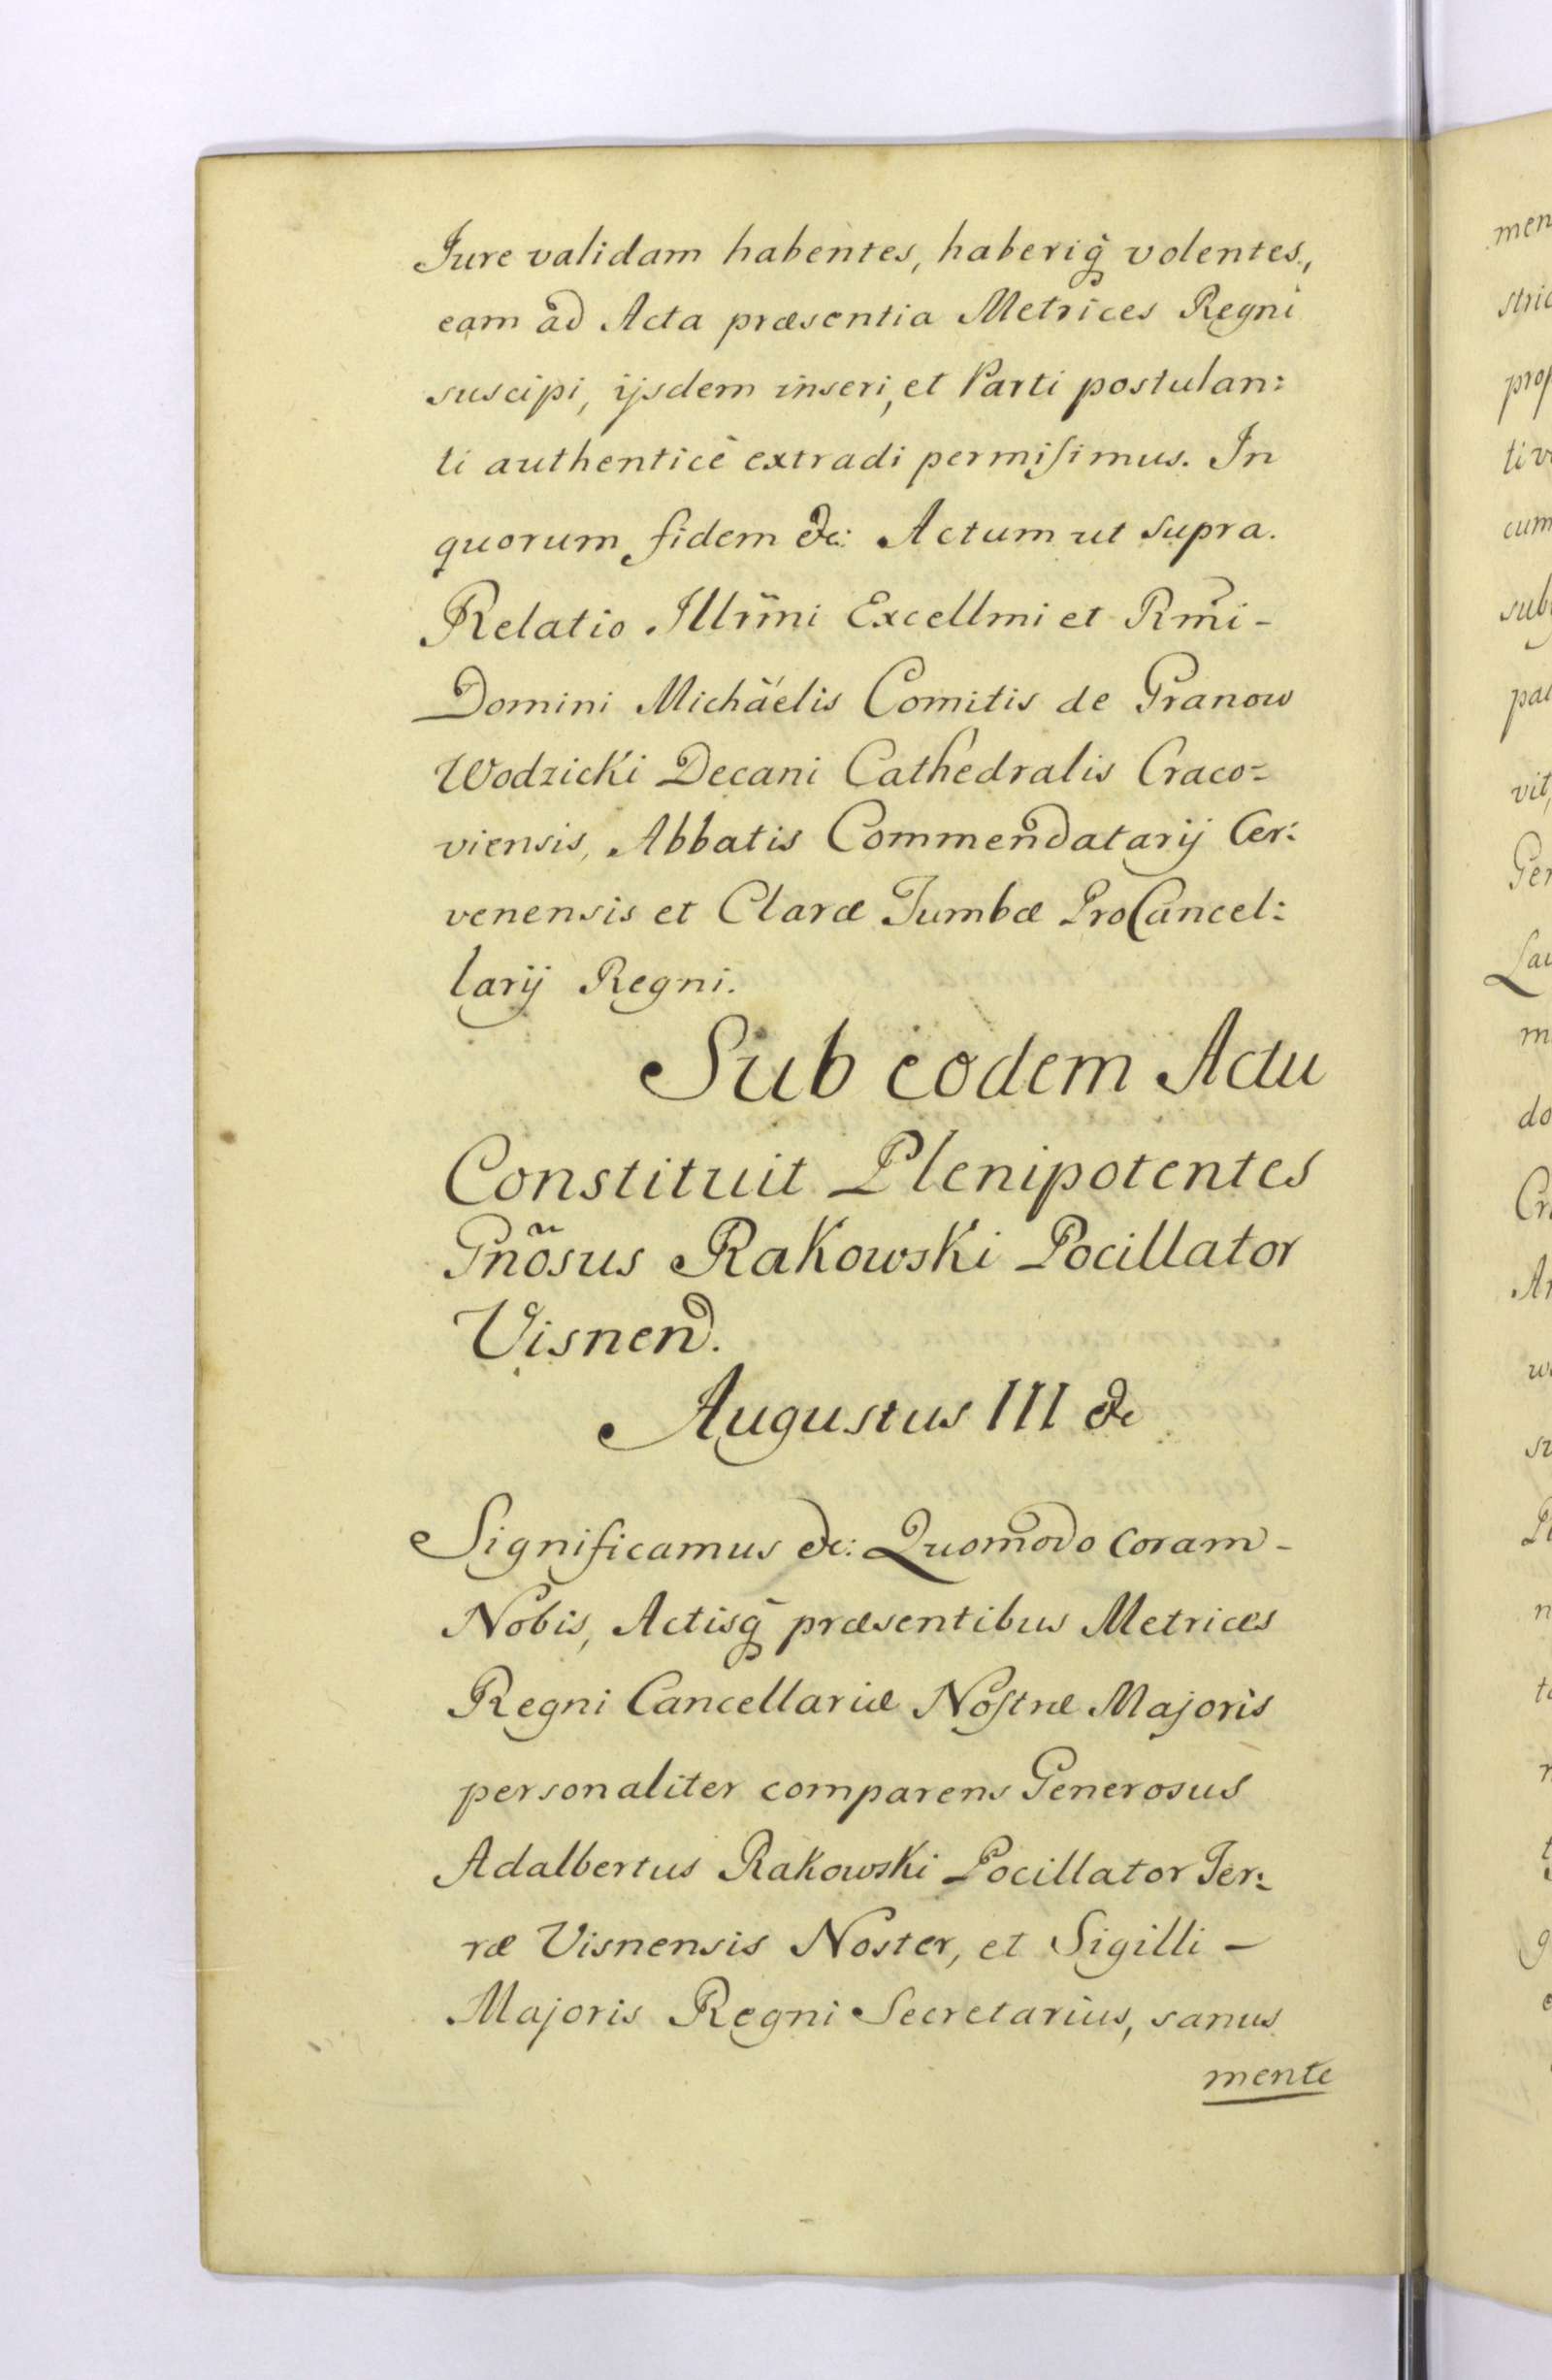 Jure validam habentes, haberiq̃ volentes,
eam ad Acta præsentia Metrices Regni
suscipi, ijsdem inseri, et Parti postulan:
ti authenticè extradi permisimus. In
quorum fidem &c: Actum ut supra.
Relatio Illr̃mi Excellmi et Rm̃i-
Domini Michäelis Comitis de Granow
Wodzicki Decani Cathedralis Craco=
viensis, Abbatis Commendatarij Cer:
venensis et Claræ Tumbæ ProCancel:
larij Regni.
Sub eodem Actu
Constituit Plenipotentes
Gñosus Rakowski Pocillator
Visnen̄.
Augustus III &c
Significamus &c: Quomodo coram-
Nobis, Actisq̃ præsentibus Metrices
Regni Cancellariæ Nostræ Majoris
personaliter comparens Generosus
Adalbertus Rakowski Pocillator Ter:
ræ Visnensis Noster, et Sigilli-
Majoris Regni Secretarius, sanus
mente
men
stric
prop
cum
sub
pal
vit,
Ger
Lau
m
do
Cr